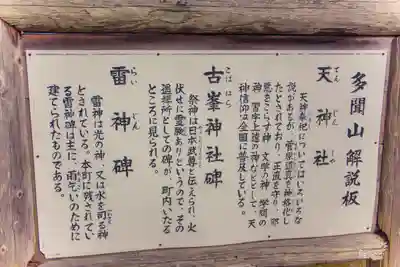 多聞山 解説板
天神社
てんじんしゃ
天神奉祀についてはいろいろな
説があるが、菅原道真を神格化し
たとされており、正直を守り、邪
悪をこらす神、文学の神、学問の
神、習字上達の神などとして、天
神信仰は全国に普及している。
古峯神社碑
こばはら
祭神は日本武尊と伝えられ、火
伏せに霊験ありというので、その
遥拝所としての碑が、町内いたる
ところに見られる。
雷神碑
らいじん
雷神は光の神、又は水を司る神
とされている。本町に残されてい
る雷神碑は主に、雨乞いのために
建てられたものである。